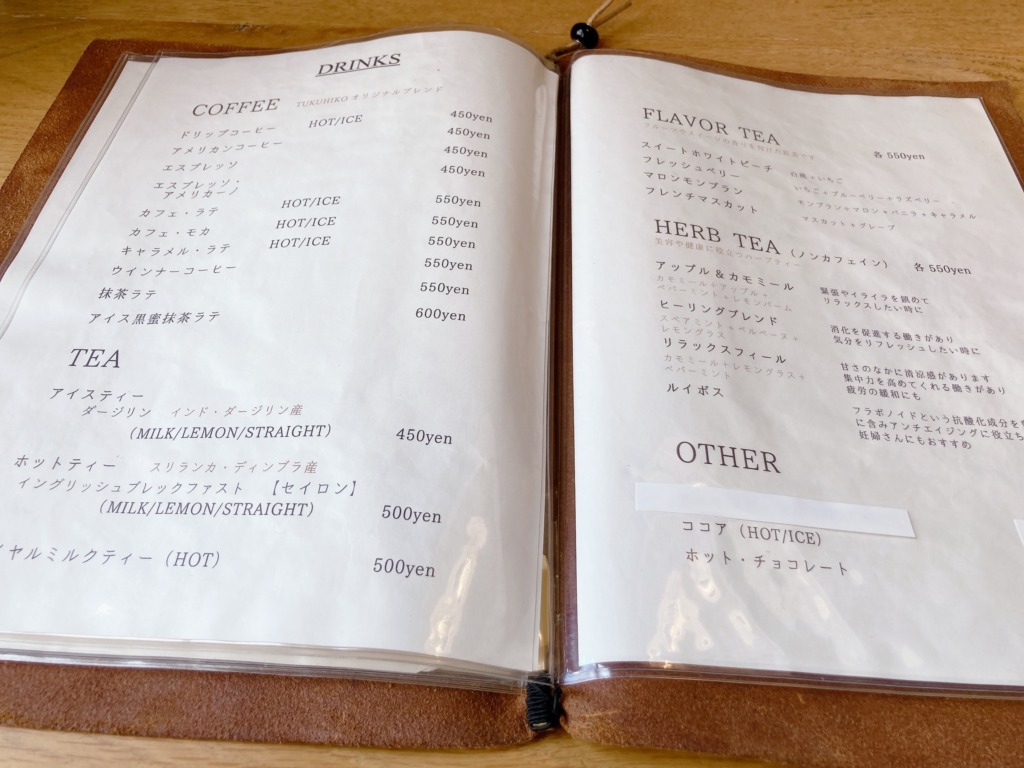 DRINKS
COFFEE TUKUHIKO オリジナルブレンド
ドリップコーヒー HOT/ICE 450yen
アメリカンコーヒー 450yen
エスプレッソ 450yen
エスプレッソ・
アメリカーノ 450yen
カフェ・ラテ HOT/ICE 550yen
カフェ・モカ HOT/ICE 550yen
キャラメル・ラテ HOT/ICE 550yen
ウインナーコーヒー 550yen
抹茶ラテ 550yen
アイス黒蜜抹茶ラテ 600yen
TEA
アイスティー
ダージリン インド・ダージリン産
(MILK/LEMON/STRAIGHT) 450yen
ホットティー スリランカ・ディンブラ産
イングリッシュブレックファスト 【セイロン】
(MILK/LEMON/STRAIGHT) 500yen
イヤルミルクティー(HOT) 500yen
FLAVOR TEA
各 550yen
スイートホワイトピーチ 白桃+いちご
フレッシュベリー いちご+ブルーベリー+ラズベリー
マロンモンブラン モンブラン+マロン+バニラ+キャラメル
フレンチマスカット マスカット+グレープ
HERB TEA (ノンカフェイン) 各 550yen
美容や健康に役立つハーブティー
アップル&カモミール
カモミール+アップル+
ペパーミント+レモンバーム
緊張やイライラを鎮めて
リラックスしたい時に
ヒーリングブレンド
スペアミント+ベルベーヌ+
レモングラス
消化を促進する働きがあり
気分をリフレッシュしたい時に
リラックスフィール
カモミール+レモングラス+
ペパーミント
甘さのなかに清涼感があります
集中力を高めてくれる働きがあり
疲労の緩和にも
ルイボス
フラボノイドという抗酸化成分を
に含みアンチエイジングに役立ち
妊婦さんにもおすすめ
OTHER
ココア(HOT/ICE)
ホット・チョコレート